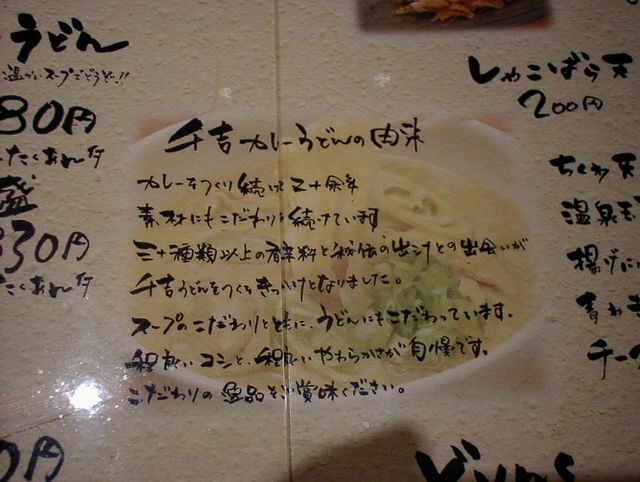 うどん
温かいスープでどうぞ!!
80円
たくあん付
盛
830円
たくあん付
0円
千吉カレーうどんの由来
カレーをつくり続けて二十余年
素材にもこだわりを続けている
三十種類以上の香辛料と秘伝の出汁との出会いが
千吉うどんをつくるきっかけとなりました。
スープのこだわりとともに、うどんにもこだわっています。
程良いコシと、程良いやわらかさが自慢です。
こだわりの逸品をご賞味ください。
しゃこばら天
200円
ちくわ天
温泉玉
揚げに
チー